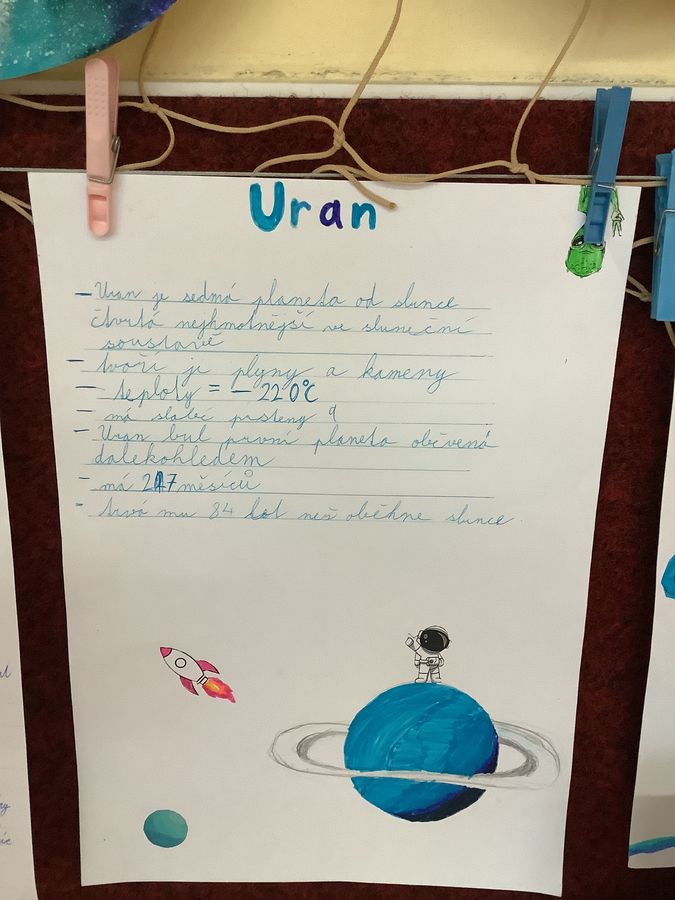 Uran
- Uran je sedmá planeta od slunce
čtvrtá nejhmotnější ve sluneční
soustavě
- tvoří ji plyny a kameny
- teploty = - 220°C
- má slabé prsteny
- Uran byl první planeta oběvená
dalekohledem
- má 27 měsíců
- trvá mu 84 let než oběhne slunce